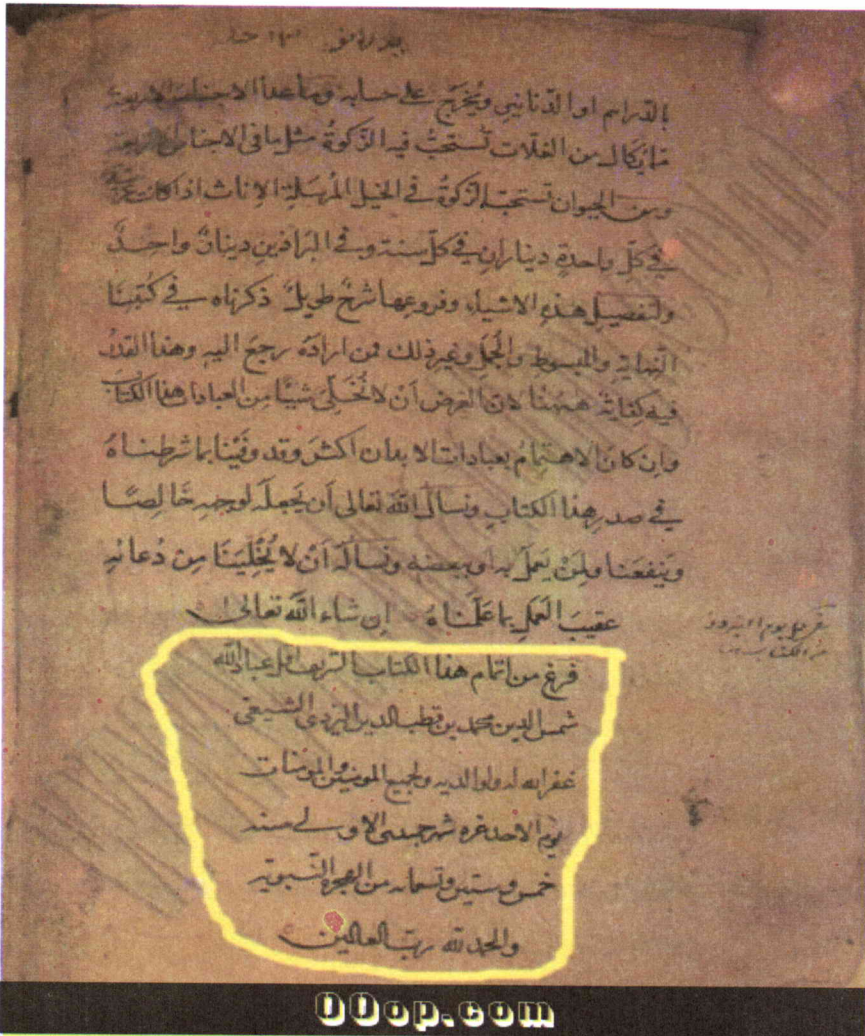 بالدراهم او الدنانير ويُخرج على حسابه وما عدا الاجناس الاربعة
مما يُكال من الغلات تستحبّ فيه الزكوةُ مثل ما في الاجناس الاربعة
ومن الحيوان تستحبّ الزكوةُ في الخيل المُرسَلةِ الاِناث اذا كانت
في كلّ واحدةٍ دينارانِ في كلّ سنة وفي البَراذينِ دينارٌ واحدٌ
ولتفصيل هذهِ الاشياء وفروعها شرحٌ طويلٌ ذكرناه في كُتُبِنَا
النهاية والمبسوط والجُمل وغير ذلك فمن ارادَهُ رجعَ اليه وهذا القدرُ
فيه كِفايةٌ ههُنا لانّ الغرض اَنْ لا نُخَلّى شيئًا من العبادات هذا الكتاب
واِن كان الاهتمامُ بعبادات الابدان اكثرَ وقد وفَينا بما شرطناهُ
في صدرِ هذا الكتابِ ونسأل الله تعالى اَن يجعلَه لوجهِه خالِصًا
ويَنفعَنا ولِمَنْ يعمل به او ببعضه ونسالهُ اَنْ لا يُخْلِيَنَا مِن دُعائهِ
عقيبَ العَملِ بما عَمِلناهُ اِن شاء الله تعالى
فرغ من اتمام هذا الكتاب الشريف اقل عباد الله
شمس الدين محمد بن قطب الدين اليزدى الشيعى
غفر الله له ولوالديه ولجميع المومنين والمومنات
يوم الاحد غره شهر جمدى الاولى سنه
خمس وستين وتسمائه من الهجرة النبوية
والحمد لله رب العالمين
00op.com